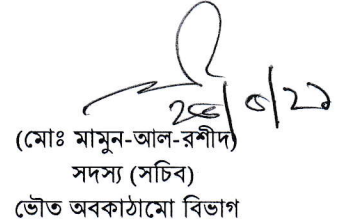 (মোঃ মামুন-আল-রশীদ)
সদস্য (সচিব)
ভৌত অবকাঠামো বিভাগ